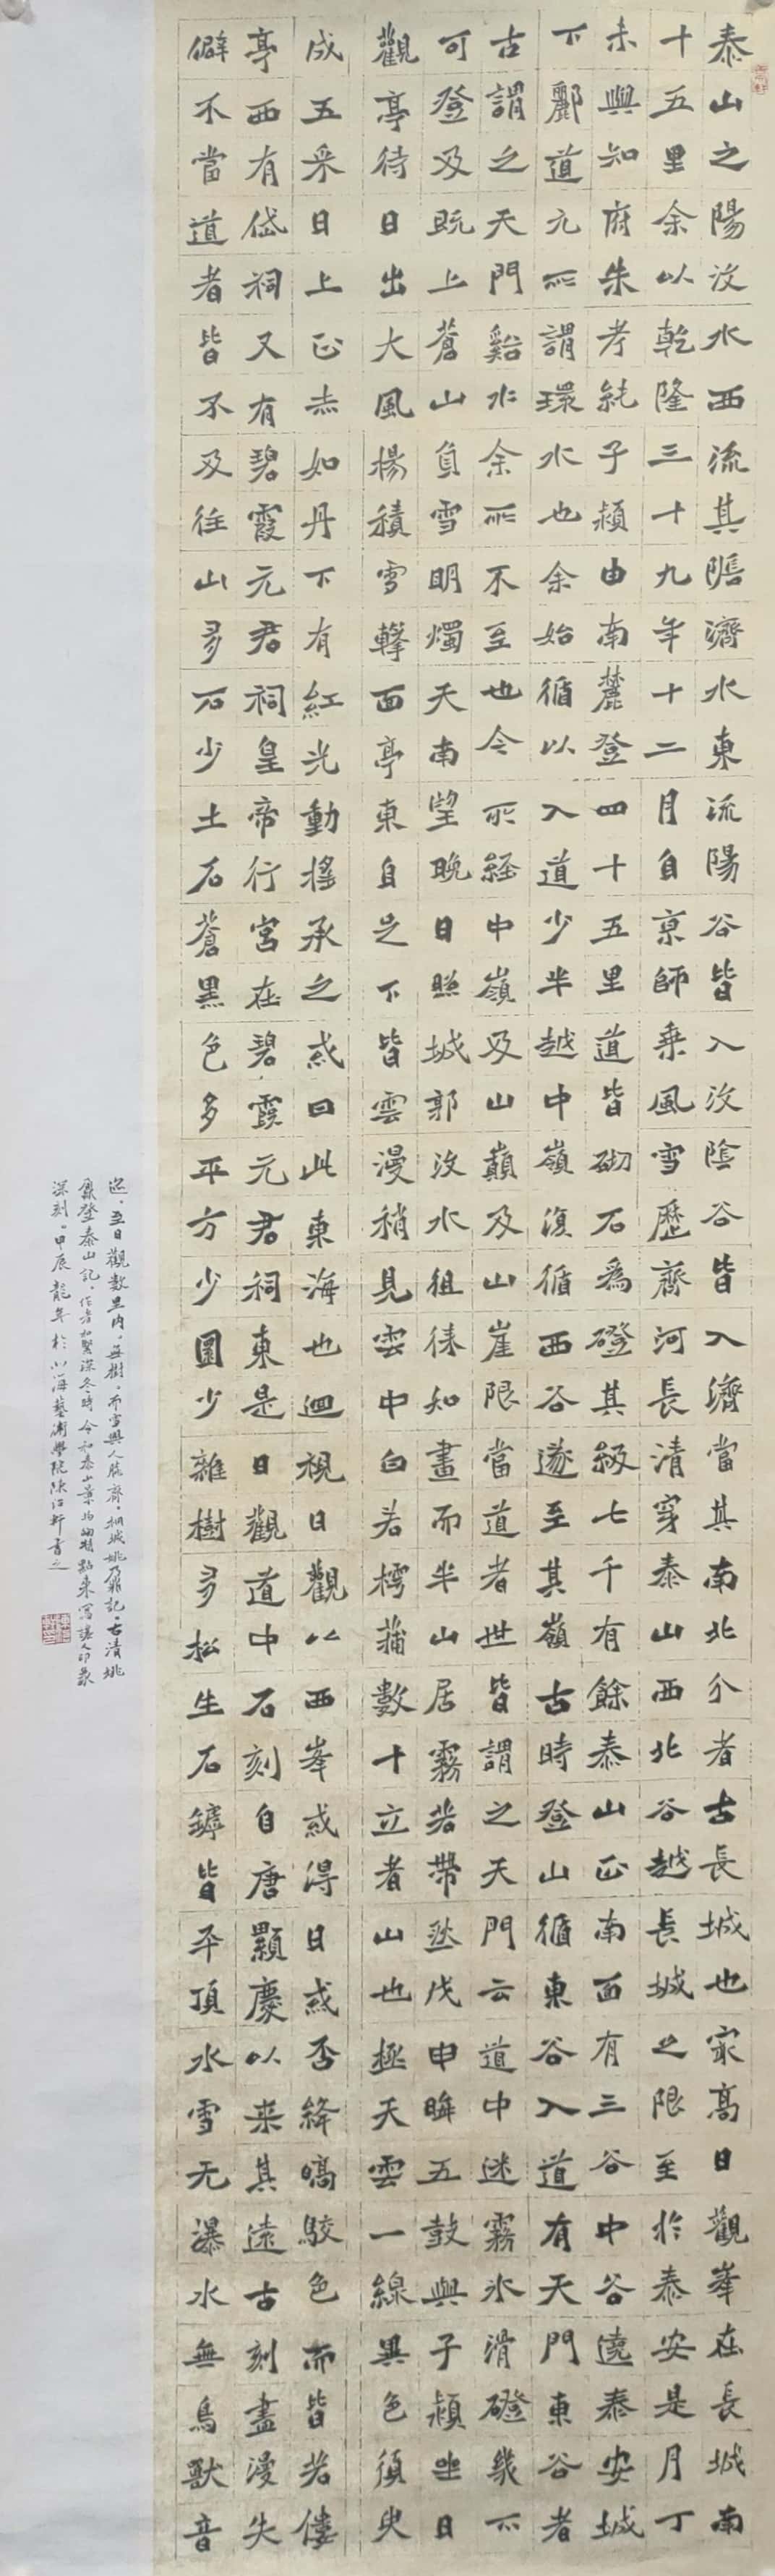 泰山之陽汶水西流其陰濟水東流陽谷皆入汶陰谷皆入濟當其南北分者古長城也最高日觀峯在長城南
十五里余以乾隆三十九年十二月自京師乘風雪歷齊河長清穿泰山西北谷越長城之限至於泰安是月丁
未與知府朱考純子潁由南麓登四十五里道皆砌石爲磴其級七千有餘泰山正南面有三谷中谷遶泰安城
下酈道元所謂環水也余始循以入道少半越中嶺復循西谷遂至其嶺古時登山循東谷入道有天門東谷者
古謂之天門谿水余所不至也今所經中嶺及山巔及山崖限當道者世皆謂之天門云道中迷霧冰滑磴幾不
可登及既上蒼山負雪明燭天南望晚日照城郭汶水徂徠知畫而半山居霧若帶然戊申晦五鼓與子潁坐日
觀亭待日出大風楊積雪擊面亭東自足下皆雲漫稍見雲中白若樗蒱數十立者山也極天雲一線異色須臾
成五采日上正赤如丹下有紅光動搖承之或曰此東海也迴視日觀以西峯或得日或否絳皜駁色而皆若僂
亭西有岱祠又有碧霞元君祠皇帝行宮在碧霞元君祠東是日觀道中石刻自唐顯慶以来其遠古刻盡漫失
僻不當道者皆不及往山多石少土石蒼黑色多平方少圜少雜樹多松生石罅皆平頂冰雪无瀑水無鳥獸音
迹。至日觀數里内。無樹。而雪與人膝齊。桐城姚乃鼐記。古清姚
鼐登泰山記。作者和繫深冬時令和泰山景物的特點來寫讓人印象
深刻。甲辰龍年於山海藝術學院陳江軒書之